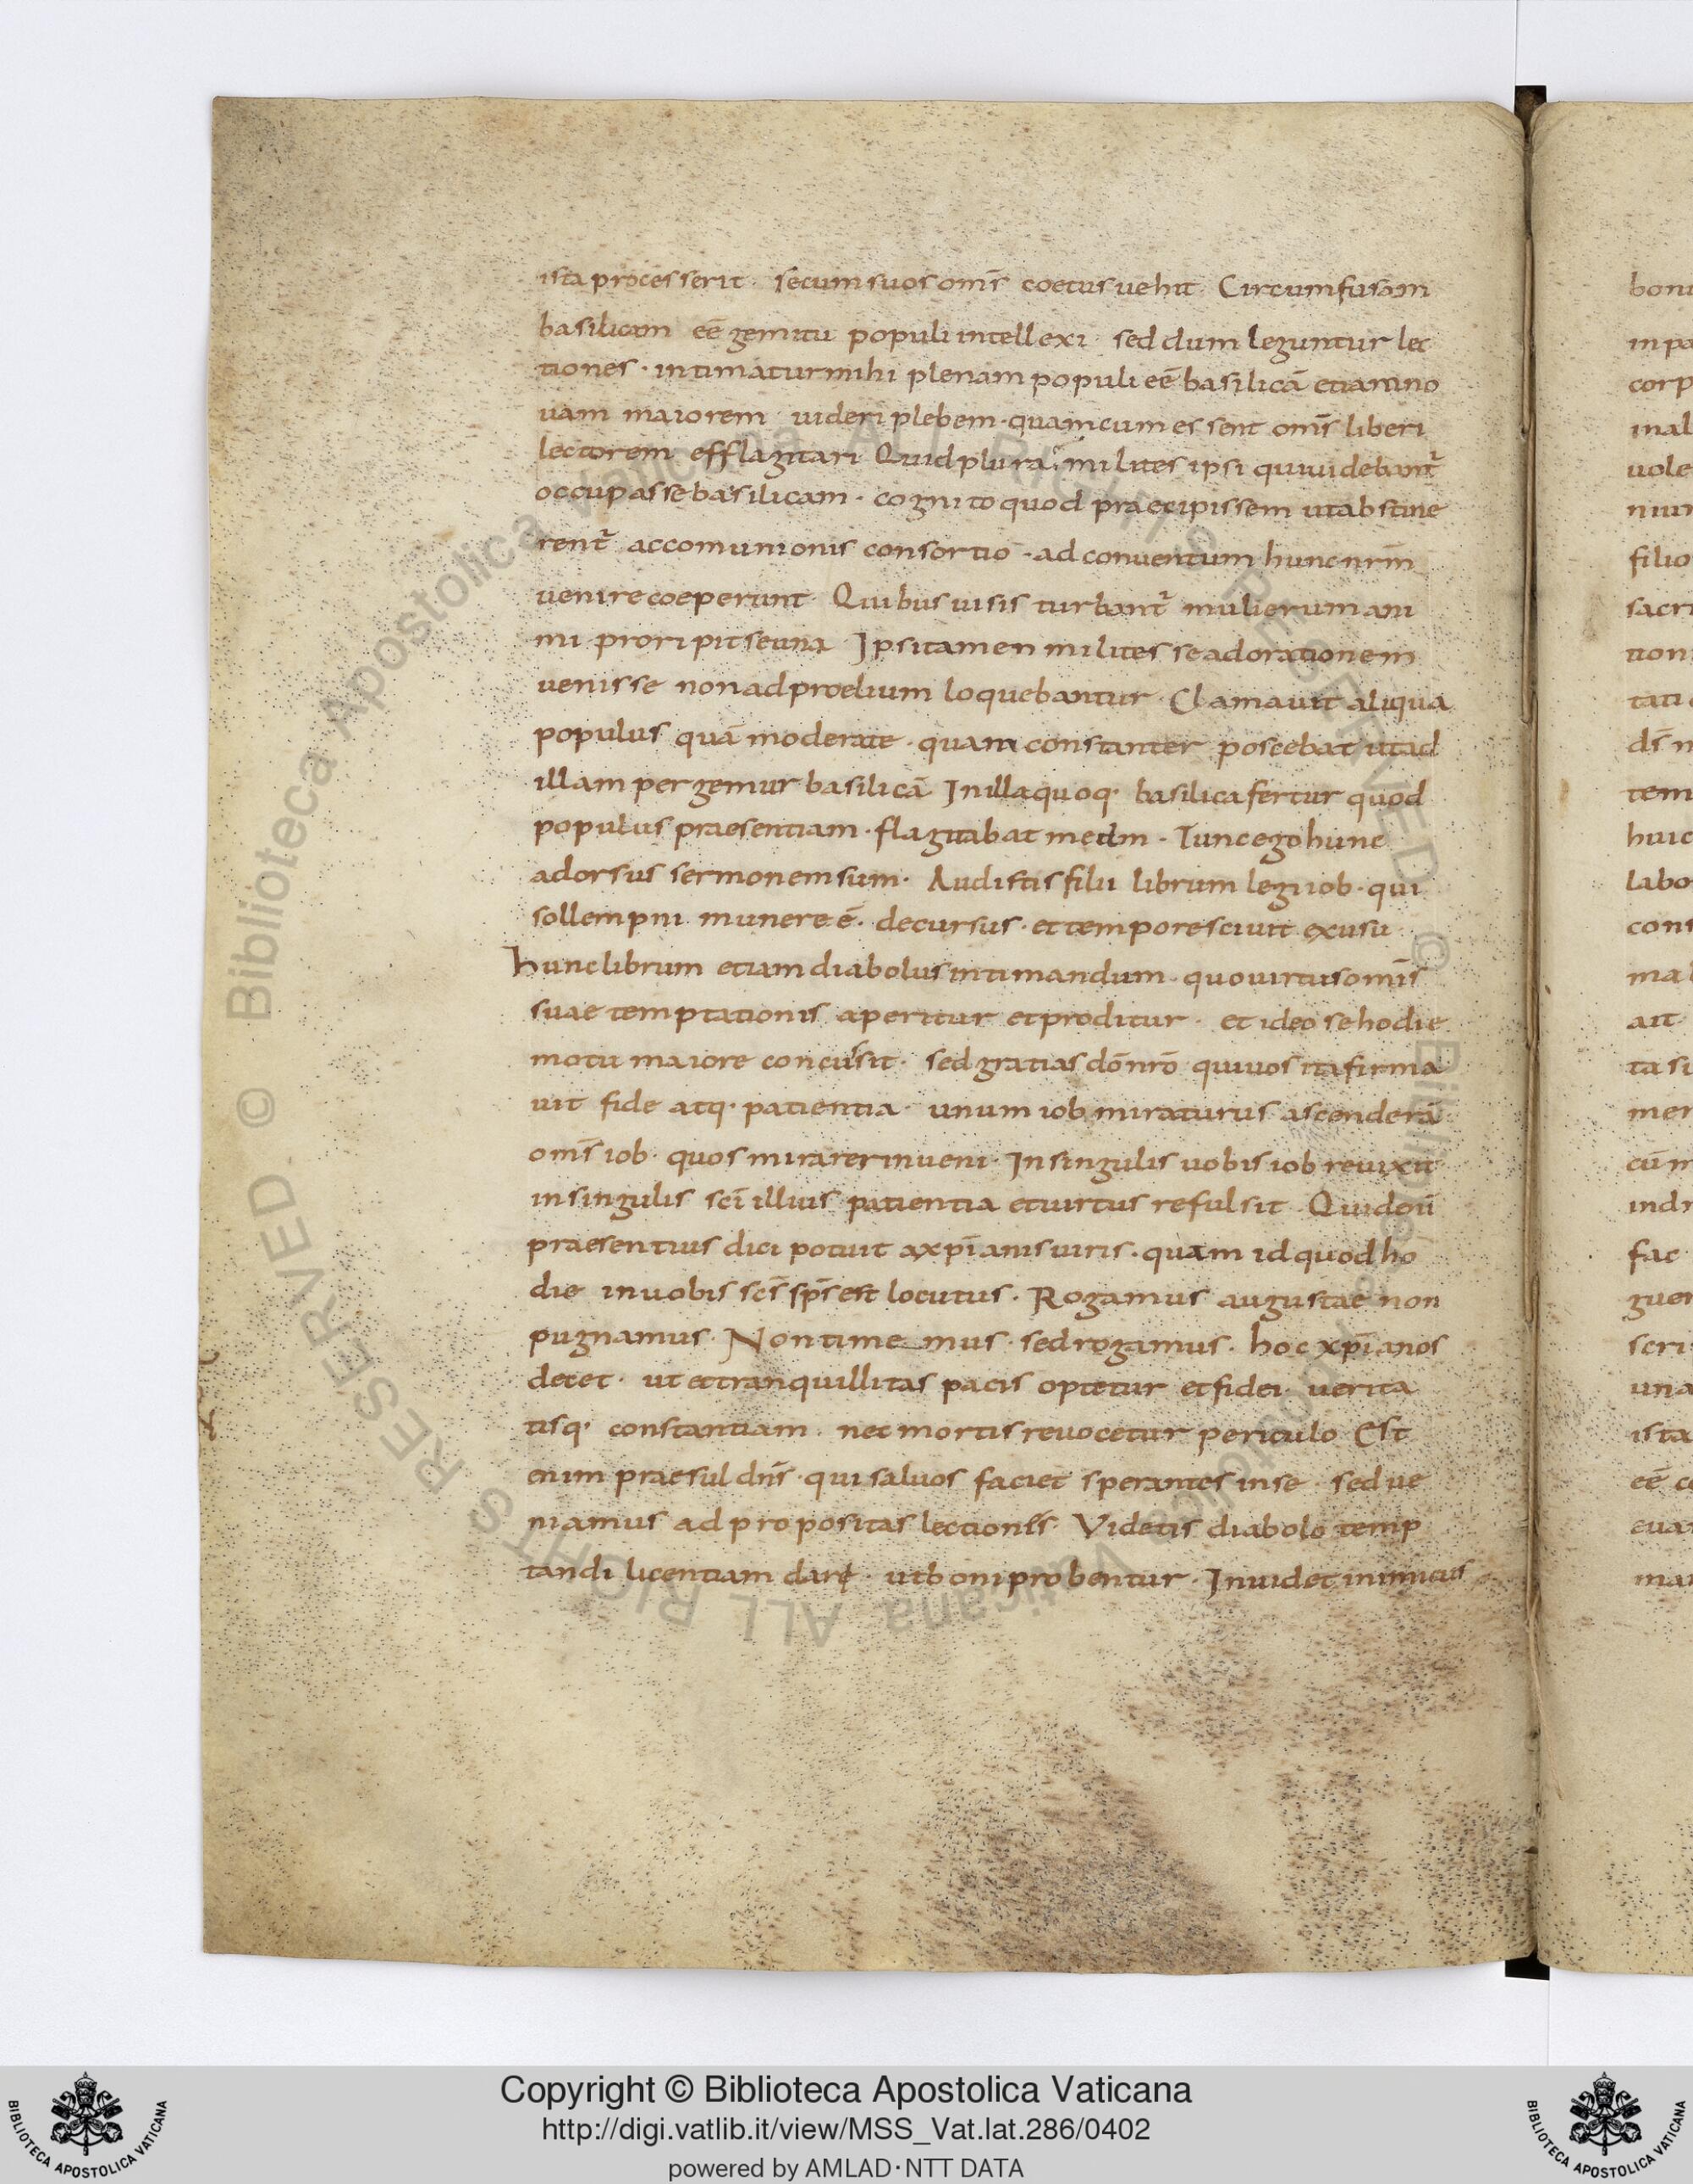 ista processerit · secum suos om̄s coetus uehit · Circumfusam
basilicam eē gemitu populi intellexi · sed dum leguntur lec
tiones · intimatur mihi plenam populi eē basilicā etiam no
uam maiorem · uideri plebem · quam cum essent om̄s liberi
lectorem efflagitari Quid plura · milites ipsi qui uidebant̄
occupasse basilicam · cognito quod praecipissem ut abstine
rent̄ a ccomunionis consortio · ad conuentum hunc nr̄m
uenire coeperunt · Quibus uisis turbant̄ mulierum ani
mi proripit se una Ipsi tamen milites se ad orationem
uenisse non ad proelium loquebantur · Clamauit aliqua
populus quā moderate · quam constanter poscebat ut ad
illam pergemur basilicā In illa quoq· basilica fertur quod
populus praesentiam · flagitabat meam · Tunc ego hunc
adorsus sermonem sum · Audistis filii librum legi iob · qui
sollempni munere ē · decursus · et tempore sciuit ex usu
hunc librum etiam diabolus intimandum · quo uirtus om̄is
suae temptationis aperitur et proditur · et ideo se hodie
motu maiore concusit · sed gratias dō nrō qui uos ita firma
uit fide atq· patientia · unum iob miraturus ascenderā
om̄s iob · quos mirarer inueni · In singulis uobis iob reuixit
in singulis sc̄i illius patientia et uirtus refulsit · Quid enī
praesentius dici potuit a xp̄ianis uiris · quam id quod ho
die in uobis sc̄s sp̄s est locutus · Rogamus auguste non
pugnamus · Non timemus · sed rogamus · hoc xp̄ianos
decet · ut et tranquillitas pacis optetur et fidei · uerita
tisq· constantiam · nec mortis reuocetur periculo Est
enim praesul dn̄s · qui saluos faciet sperantes in se · sed ue
niamus ad propositas lectiones · Videtis diabolo temp
tandi licentiam dare · ut boni probentur · Inuidet inimicus
bon
in pa
corp
mal
uole
niur
filio
sacri
tion
tati
ds̄ n
tem
huic
labo
cons
mal
ait
ta si
mer
cū m
ind
fac
guer
scri
una
ista
eē c
eua
mar
© Biblioteca Apostolica Vaticana ALL RIGHTS RESERVED © Biblioteca Apostolica Vaticana ALL RIGHTS RESERVED
BIBLIOTECA APOSTOLICA VATICANA
Copyright © Biblioteca Apostolica Vaticana
http://digi.vatlib.it/view/MSS_Vat.lat.286/0402
powered by AMLAD·NTT DATA
BIBLIOTECA APOSTOLICA VATICANA